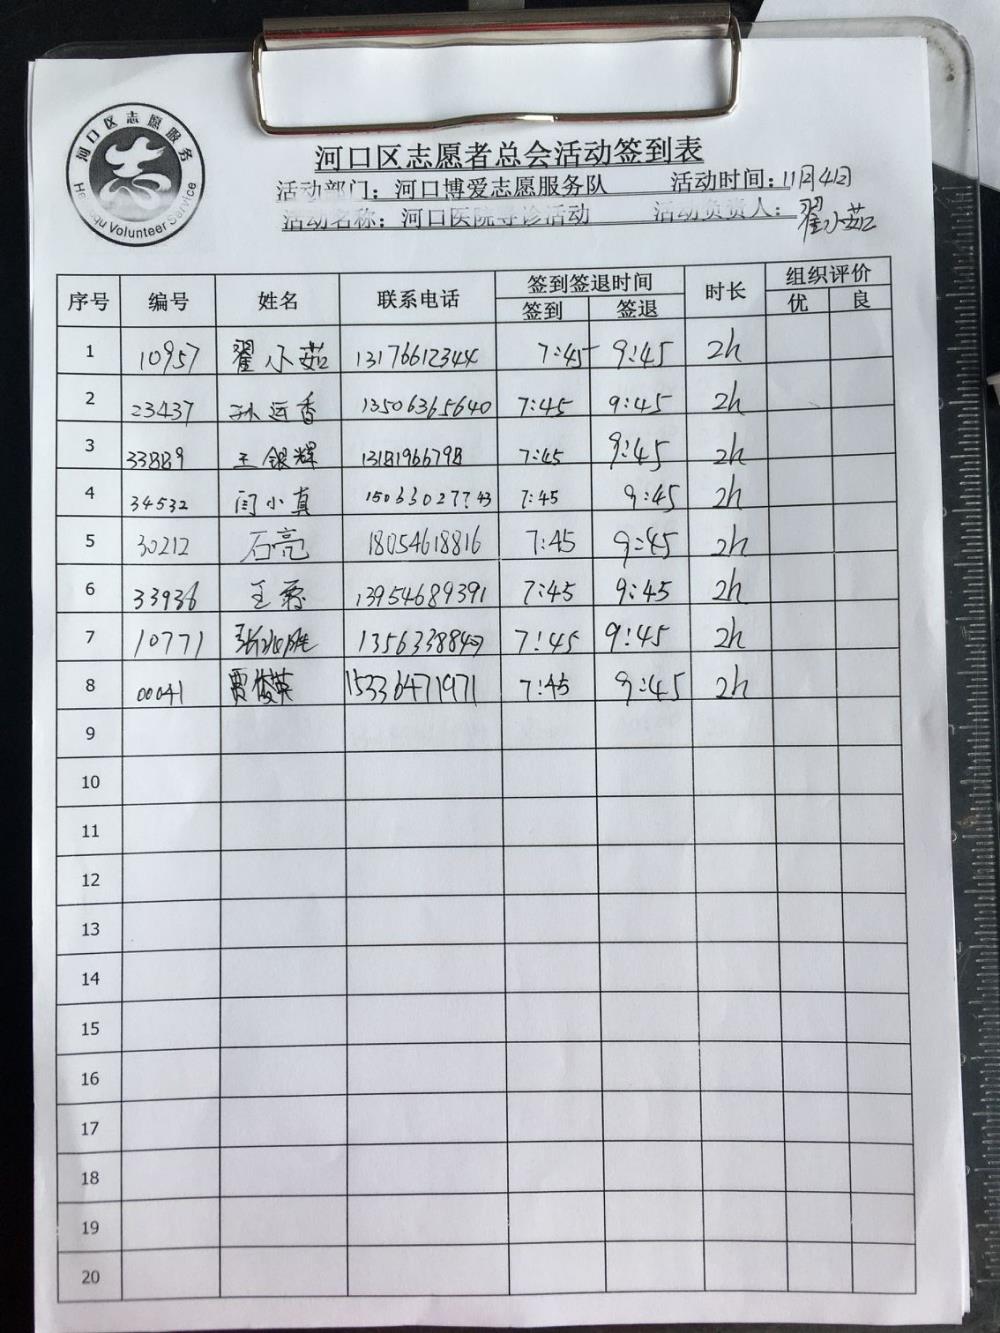 河口区志愿服务
志
Hekouqu Volunteer Service
河口区志愿者总会活动签到表
活动部门：河口博爱志愿服务队 活动时间：11月4日
活动名称：河口医院导诊活动 活动负责人：翟小茹
序号 编号 姓名 联系电话 签到签退时间 时长 组织评价
签到 签退 优 良
1 10957 翟小茹 13176612344 7:45 9:45 2h
2 23437 孙运香 13506365640 7:45 9:45 2h
3 33889 王银辉 13181966798 7:45 9:45 2h
4 34532 闫小真 15063302743 7:45 9:45 2h
5 30212 石亮 18054618816 7:45 9:45 2h
6 33936 王 13954689391 7:45 9:45 2h
7 10771 张 7:45 9:45 2h
8 00041 贾俊英 15336471971 7:45 9:45 2h
9
10
11
12
13
14
15
16
17
18
19
20